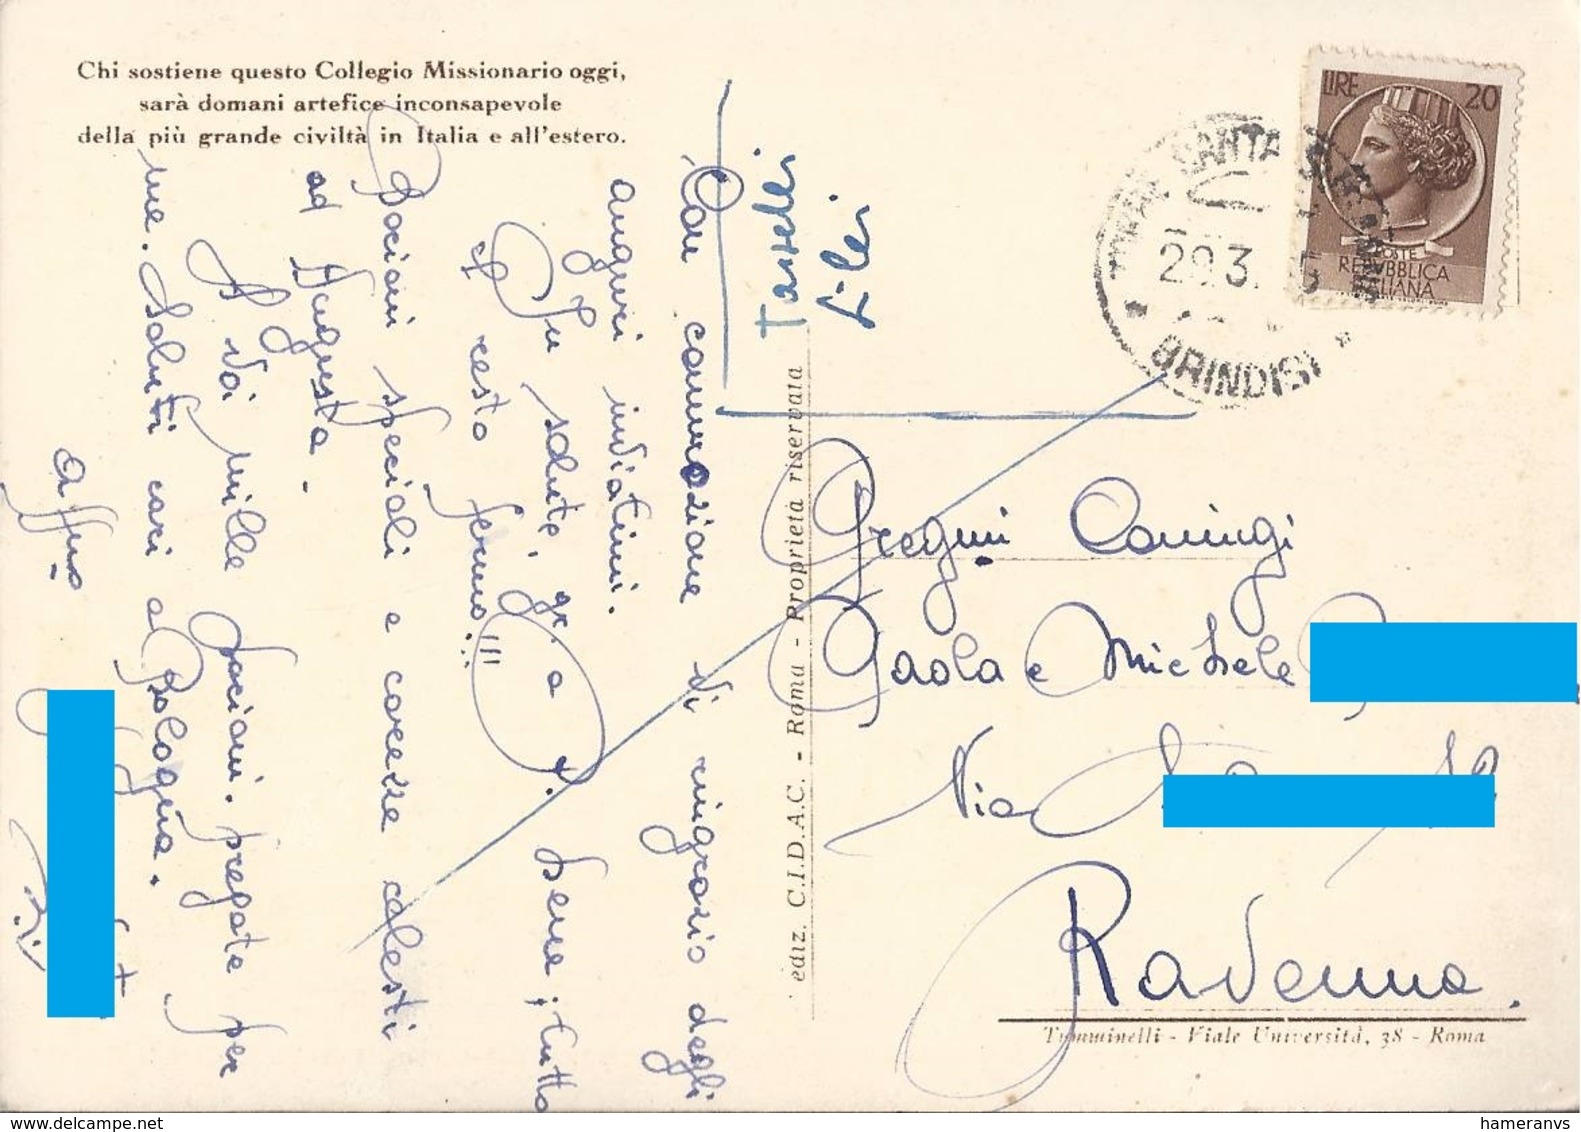 Chi sostiene questo Collegio Missionario oggi,
sarà domani artefice inconsapevole
della più grande civiltà in Italia e all'estero.
Con commozione vi ringrazio degli
auguri inviatimi.
In salute, gr. a D. bene; tutto
il resto fermo!!!
Bacioni speciali e carezze celesti
ad Augusta.
A voi mille bacioni. pregate per
me. Saluti cari a Bologna.
affmo
Tasselli
ediz. C.I.D.A.C. - Roma - Proprietà riservata
LIRE 20
POSTE
REPVBBLICA
ITALIANA
SANTA
BRINDISI
Pregmi Coniugi
Paola e Michele
Via
Ravenna.
Tumminelli - Viale Università, 38 - Roma
www.delcampe.net
hameranvs